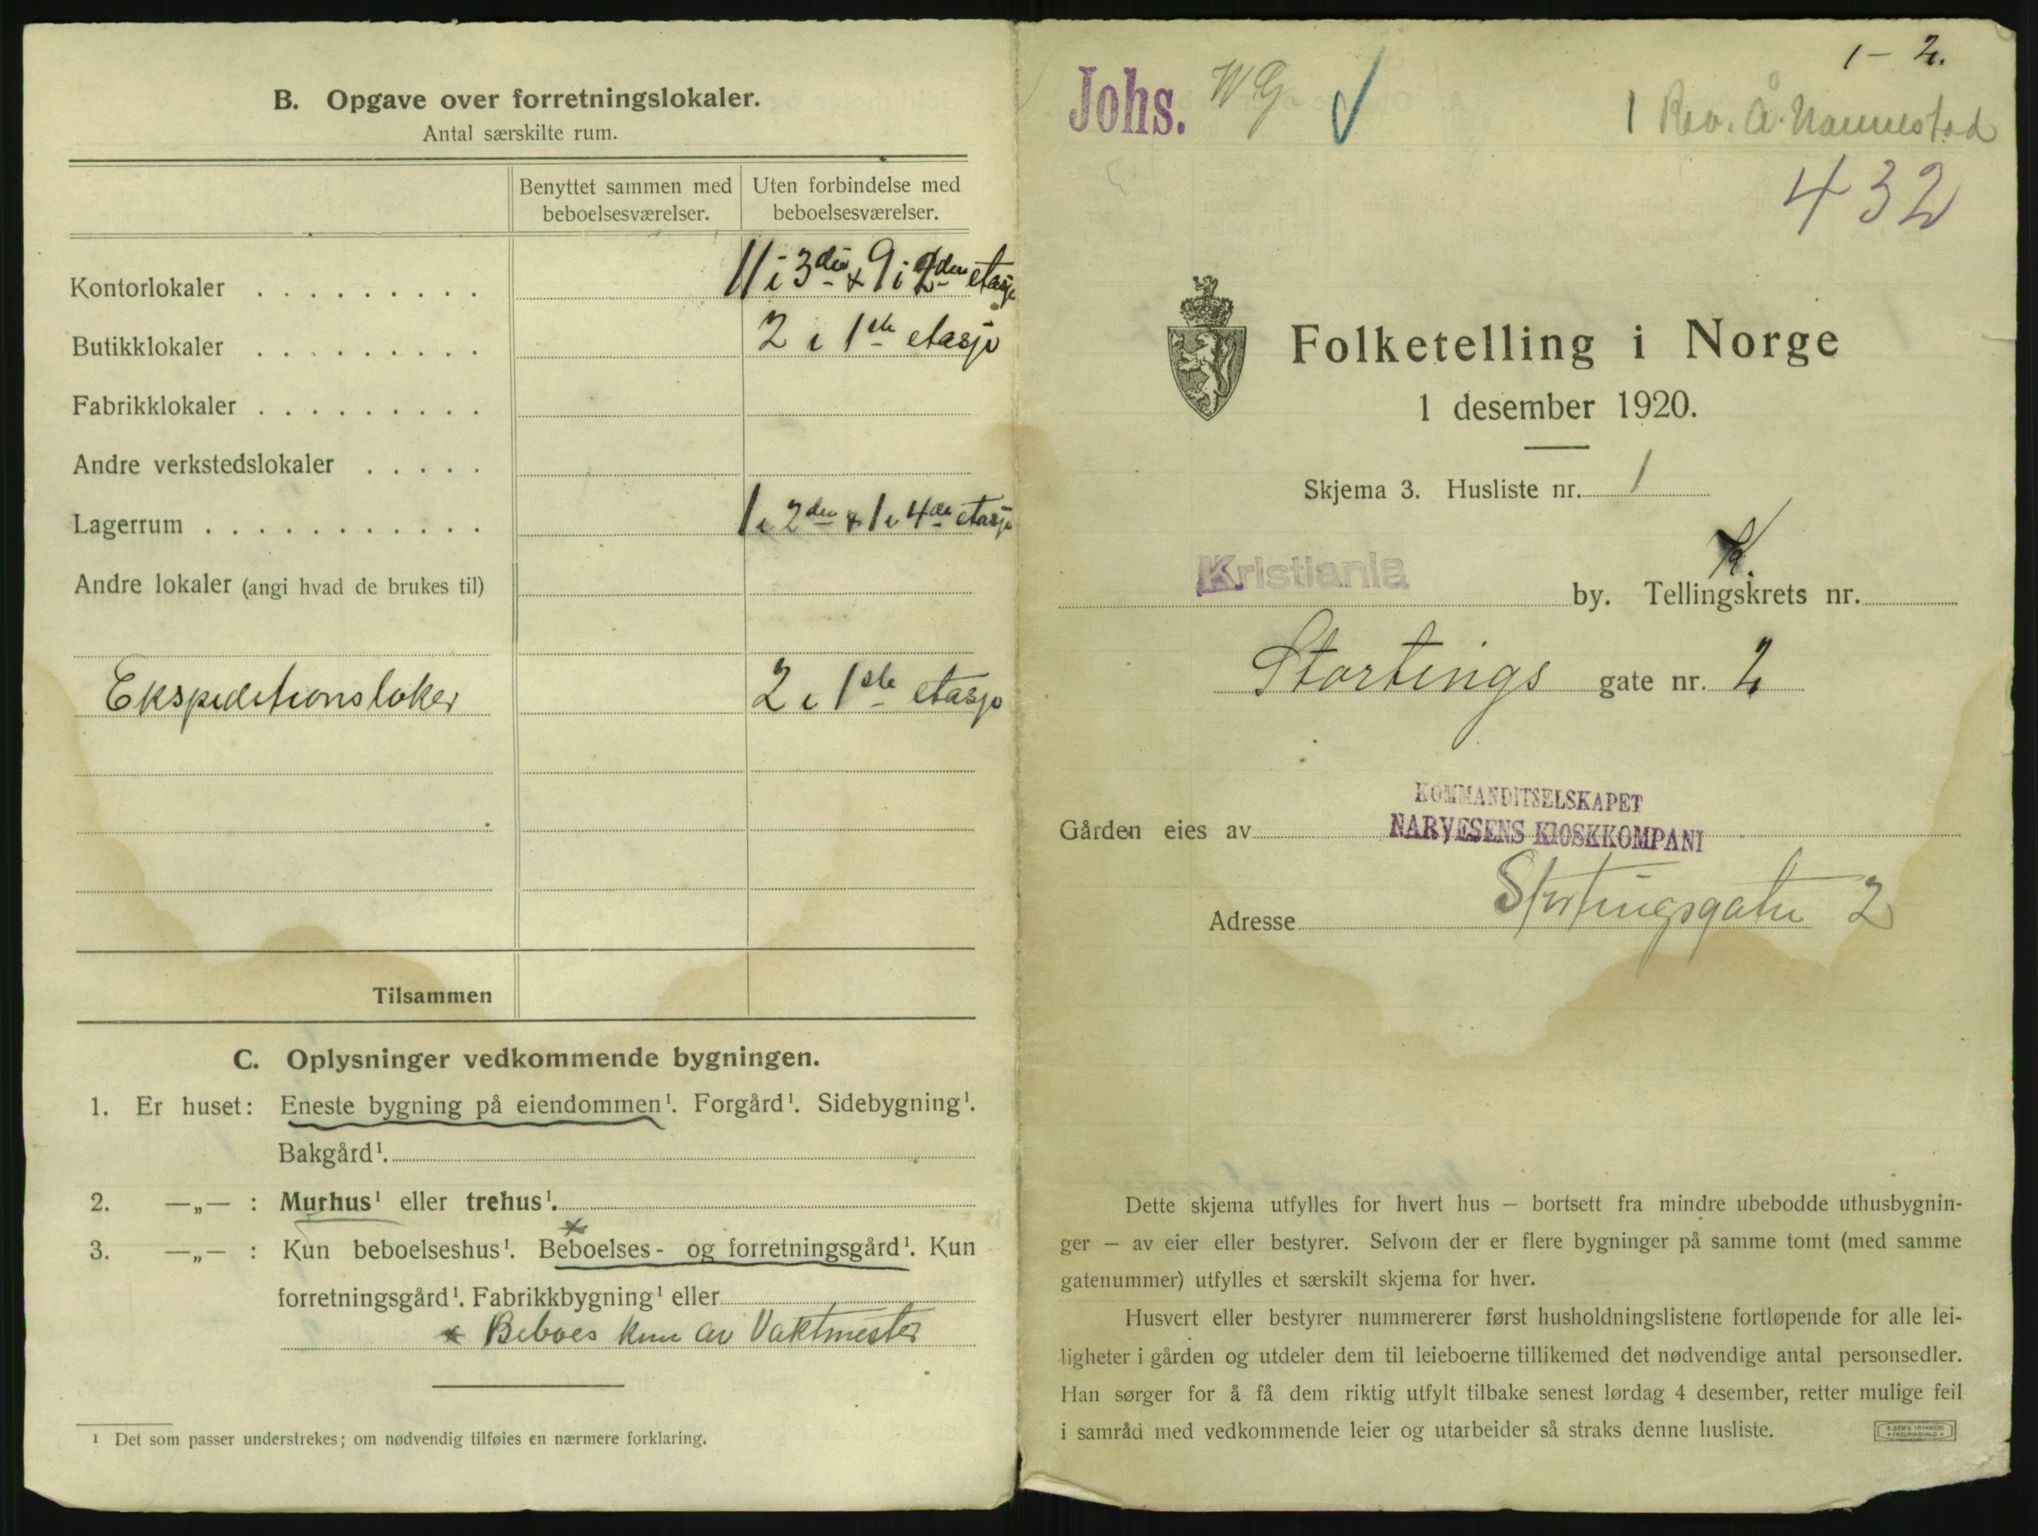 B. Opgave over forretningslokaler.
Antal særskilte rum.
Benyttet sammen med beboelsesværelser.
Uten forbindelse med beboelsesværelser.
Kontorlokaler . . . . . . . . . 11 i 3die + 9 i 2den etasje
Butikklokaler . . . . . . . . . 2 i 1ste etasje
Fabrikklokaler . . . . . . . . .
Andre verkstedslokaler . . . . .
Lagerrum . . . . . . . . . . . 1 i 2den + 1 i 4de etasje
Andre lokaler (angi hvad de brukes til)
Ekspeditionsloker 2 i 1ste etasje
Tilsammen
C. Oplysninger vedkommende bygningen.
1. Er huset: Eneste bygning på eiendommen¹. Forgård¹. Sidebygning¹.
Bakgård¹.
2. —„— : Murhus¹ eller trehus¹.
3. —„— : Kun beboelseshus¹. Beboelses- og forretningsgård¹. Kun
forretningsgård¹. Fabrikkbygning¹ eller
× Beboes kun av Vaktmester
¹ Det som passer understrekes; om nødvendig tilføies en nærmere forklaring.
1 – 2.
Johs. W G
1 Rev. Å. Nannestad
432
Folketelling i Norge
1 desember 1920.
Skjema 3. Husliste nr. 1
Kristiania by. Tellingskrets nr.
K.
Stortings gate nr. 2
KOMMANDITSELSKAPET
Gården eies av NARVESENS KIOSKKOMPANI
Adresse Stortingsgaten 2
Dette skjema utfylles for hvert hus — bortsett fra mindre ubebodde uthusbygnin-
ger — av eier eller bestyrer. Selvom der er flere bygninger på samme tomt (med samme
gatenummer) utfylles et særskilt skjema for hver.
Husvert eller bestyrer nummererer først husholdningslistene fortløpende for alle lei-
ligheter i gården og utdeler dem til leieboerne tillikemed det nødvendige antal personsedler.
Han sørger for å få dem riktig utfylt tilbake senest lørdag 4 desember, retter mulige feil
i samråd med vedkommende leier og utarbeider så straks denne husliste.